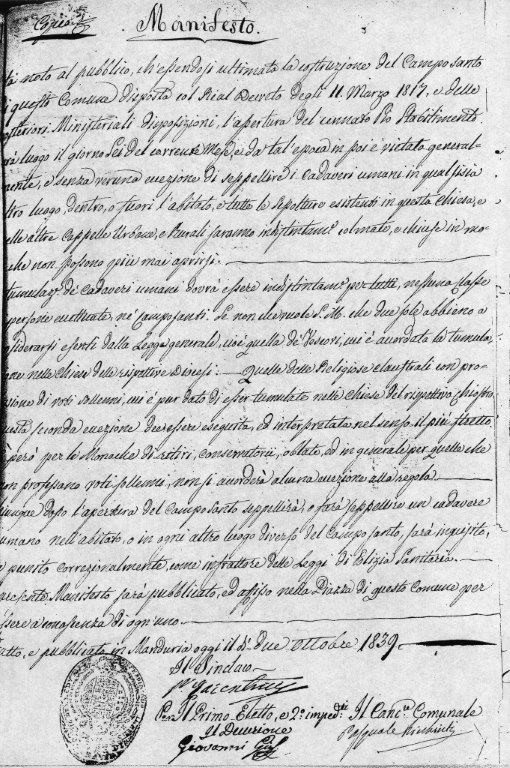 Copia
Manifesto.
noto al pubblico, ch'essendosi ultimata la costruzione del Camposanto
questo Comune disposta col Real Decreto degli 11 Marzo 1817, e delle
Ministeriali disposizioni, l'apertura del cennato Pio Stabilimento
luogo il giorno Sei del corrente Mese, e da tal'epoca in poi è vietato general-
mente, e senza veruna eccezione di seppellire i cadaveri umani in qualsisia
luogo, dentro, o fuori l'abitato, e tutte le sepolture esistenti in questa Chiesa, e
altre Cappelle Urbane, e Rurali saranno indistintame. colmate, e chiuse in mo-
che non possono più mai aprirsi.
de' cadaveri umani dovrà essere indistintame. per tutti, nessuna classe
persone eccettuate, né Camposanti. Se non che vuole S. M. che due sole abbiano a
considerarsi esenti dalla Legge generale, cioè quella de' Vescovi, cui è accordata la tumula
nelle Chiese delle rispettive Diocesi. Quella delle Religiose claustrali con pro-
di voti solenni, cui è pur dato di esser tumulate nelle Chiese del rispettivo chiostro
seconda eccezione dev'essere eseguita, ed interpretata nel senso il più stretto
però per le Monache di ritiri, conservatorii, oblate, ed in generale per quelle che
non professano voti sollenni, non si accorderà alcuna eccezione alla regola
dopo l'apertura del Camposanto seppellirà, o farà seppellire un cadavere
umano nell'abitato, o in ogni altro luogo diverso del Camposanto, sarà inquisito,
punito correzionalmente, come infrattore delle Leggi di Polizia Sanitaria.
presente Manifesto sarà pubblicato, ed affisso nella Piazza di questo Comune per
essere a conoscenza di ognuno.
e pubblicato in Manduria oggi il dì due Ottobre 1839
Il Sindaco
Pel Il Primo Eletto, e 2° imped.ti Il Canc.re Comunale
Il Decurione
Pasquale
Giovanni